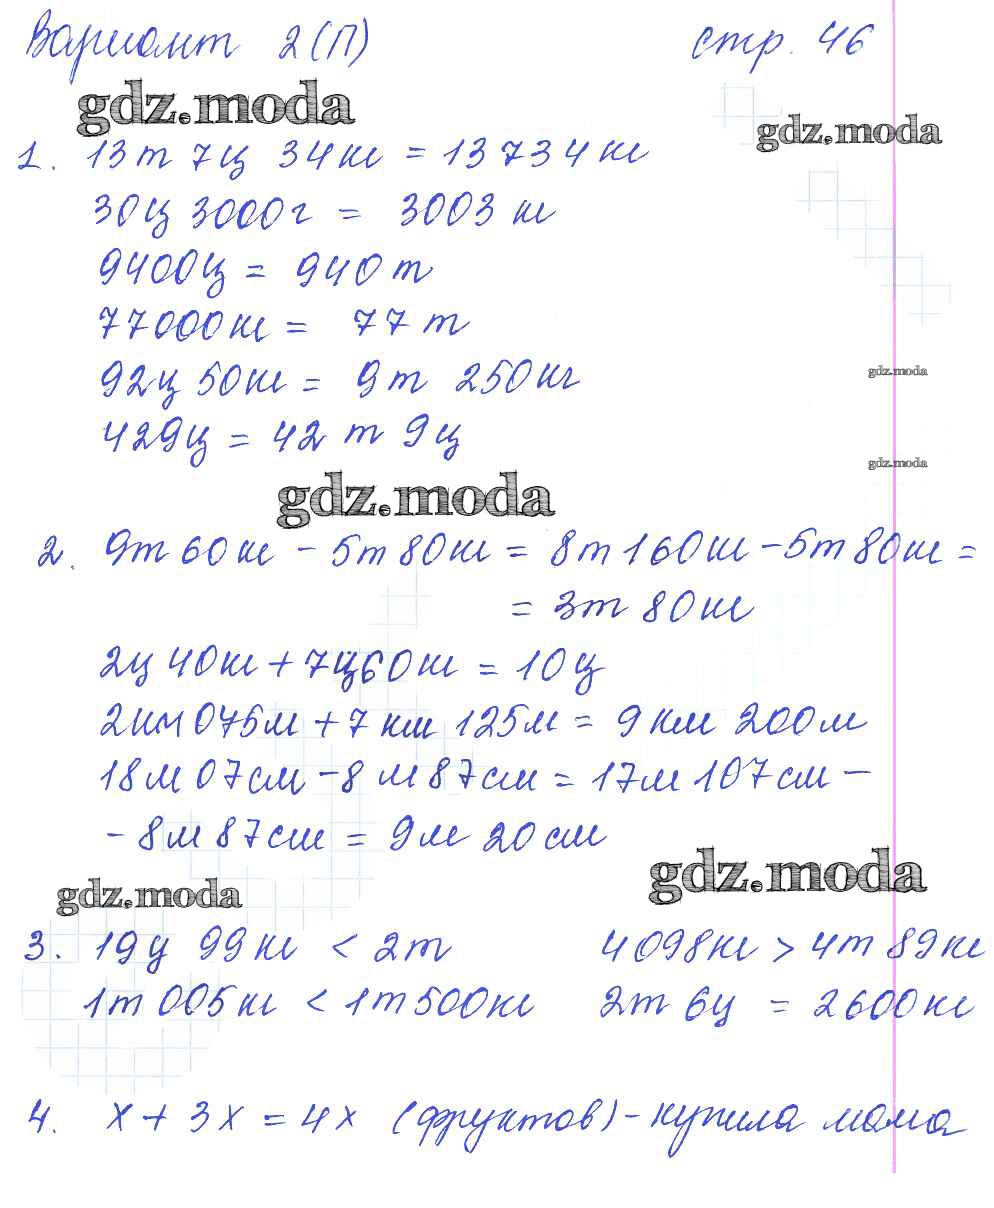 Вариант 2(П) стр. 46
gdz.moda
gdz.moda
1. 13т 7ц 34кг = 13734кг
30ц 3000г = 3003 кг
9400ц = 940 т
77000кг = 77 т
92ц 50кг = 9т 250кг
gdz.moda
429ц = 42 т 9ц
gdz.moda
gdz.moda
2. 9т 60кг - 5т 80кг = 8т 160кг - 5т 80кг =
= 3т 80кг
2ц 40кг + 7ц60кг = 10ц
2км 075м + 7 км 125м = 9 км 200м
18м 07см - 8 м 87см = 17м 107см -
- 8м 87см = 9м 20см
gdz.moda
gdz.moda
3. 19ц 99кг < 2т 4098кг > 4т 89кг
1т 005кг < 1т500кг 2т 6ц = 2600кг
4. х + 3х = 4х (фруктов) - купила мама